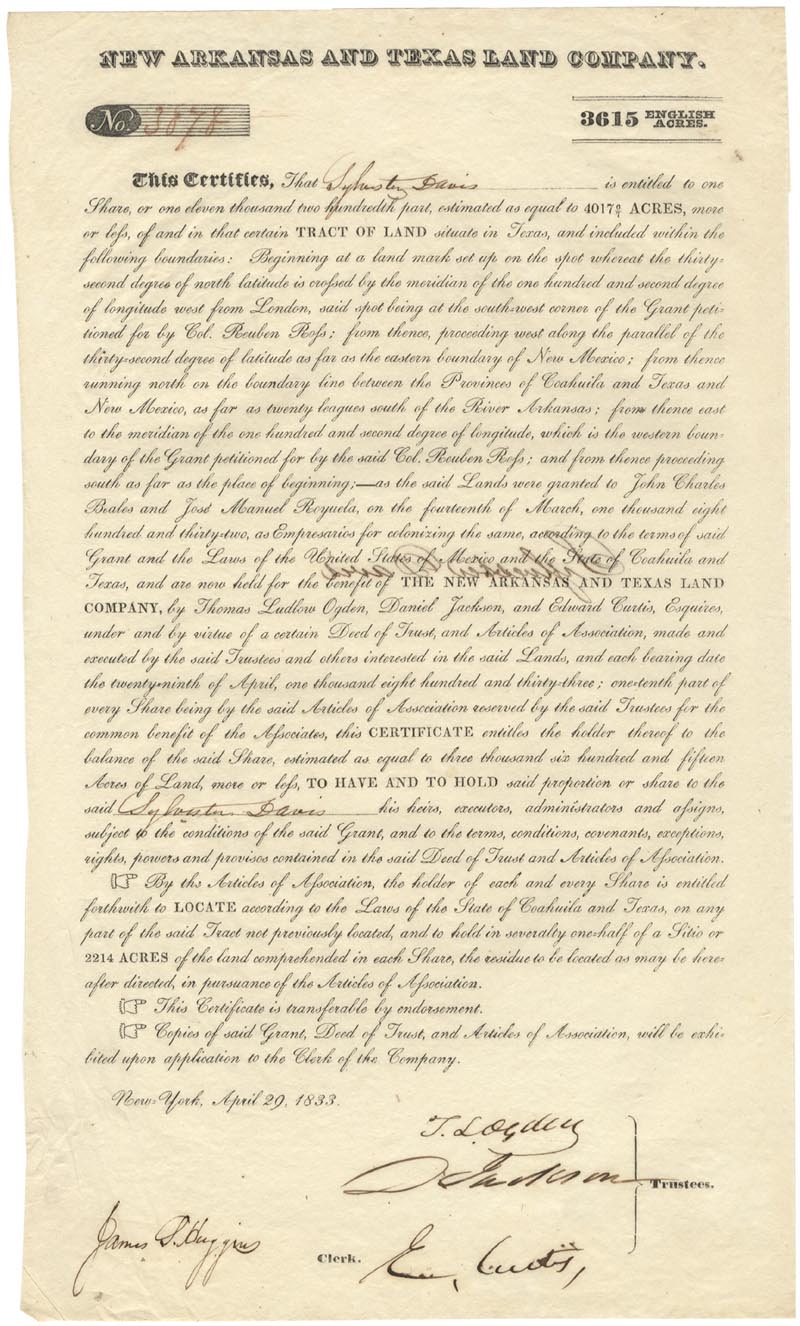 NEW ARKANSAS AND TEXAS LAND COMPANY.
No. 3878
3615 ENGLISH ACRES.
This Certifies, That Sylvester Davis is entitled to one
Share, or one eleven thousand two hundredth part, estimated as equal to 4017 ACRES, more
or leſs, of and in that certain TRACT OF LAND situate in Texas, and included within the
following boundaries: Beginning at a land mark set up on the spot whereat the thirty-
second degree of north latitude is croſsed by the meridian of the one hundred and second degree
of longitude west from London, said spot being at the south-west corner of the Grant peti-
tioned for by Col. Reuben Roſs; from thence, proceeding west along the parallel of the
thirty-second degree of latitude as far as the eastern boundary of New Mexico; from thence
running north on the boundary line between the Provinces of Coahuila and Texas and
New Mexico, as far as twenty leagues south of the River Arkansas; from thence east
to the meridian of the one hundred and second degree of longitude, which is the western boun-
dary of the Grant petitioned for by the said Col. Reuben Roſs; and from thence proceeding
south as far as the place of beginning;—as the said Lands were granted to John Charles
Beales and José Manuel Royuela, on the fourteenth of March, one thousand eight
hundred and thirty-two, as Empresarios for colonizing the same, according to the terms of said
Grant and the Laws of the United States of Mexico and the State of Coahuila and
Texas, and are now held for the benefit of THE NEW ARKANSAS AND TEXAS LAND
COMPANY, by Thomas Ludlow Ogden, Daniel Jackson, and Edward Curtis, Esquires,
under and by virtue of a certain Deed of Trust, and Articles of Association, made and
executed by the said Trustees and others interested in the said Lands, and each bearing date
the twenty-ninth of April, one thousand eight hundred and thirty-three; one-tenth part of
every Share being by the said Articles of Association reserved by the said Trustees for the
common benefit of the Aſsociates, this CERTIFICATE entitles the holder thereof to the
balance of the said Share, estimated as equal to three thousand six hundred and fifteen
Acres of Land, more or leſs, TO HAVE AND TO HOLD said proportion or share to the
said Sylvester Davis his heirs, executors, administrators and aſsigns,
subject to the conditions of the said Grant, and to the terms, conditions, covenants, exceptions,
rights, powers and provisos contained in the said Deed of Trust and Articles of Aſsociation.
☞ By the Articles of Aſsociation, the holder of each and every Share is entitled
forthwith to LOCATE according to the Laws of the State of Coahuila and Texas, on any
part of the said Tract not previously located, and to hold in severalty one-half of a Sitio or
2214 ACRES of the land comprehended in each Share, the residue to be located as may be here-
after directed, in pursuance of the Articles of Aſsociation.
☞ This Certificate is transferable by endorsement.
☞ Copies of said Grant, Deed of Trust, and Articles of Association, will be exhi-
bited upon application to the Clerk of the Company.
New-York, April 29, 1833.
T. L. Ogden
D Jackson
Trustees.
James S. Huggins
Clerk.
Ew. Curtis,